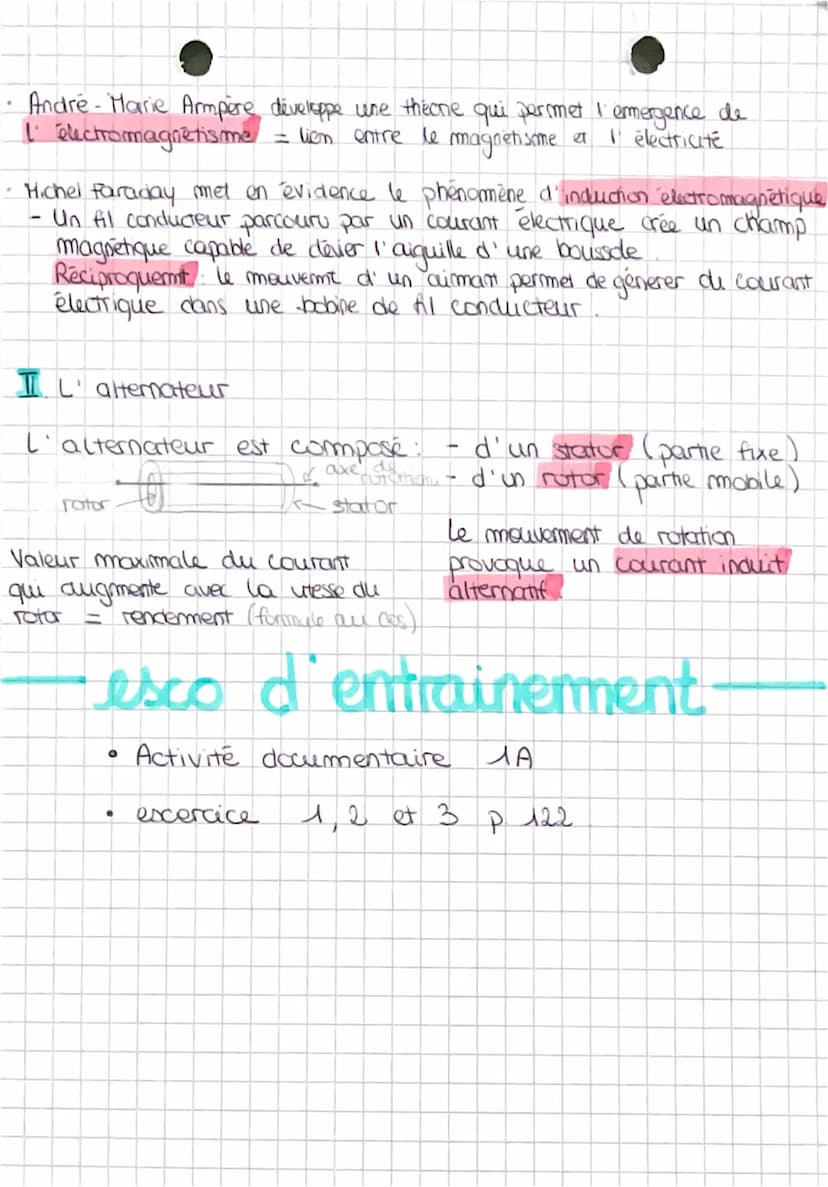 · André-Marie Ampère développe une théorie qui permet l'émergence de
l'électromagnétisme = lien entre le magnétisme et l'électricité
· Michel Faraday met en évidence le phénomène d'induction électromagnétique
- Un fil conducteur parcouru par un courant électrique crée un champ
magnétique capable de dévier l'aiguille d'une boussole.
Réciproquemt : le mouvemt d'un aimant permet de génerer du courant
électrique dans une bobine de fil conducteur.
II L'alternateur
L'alternateur est composé : - d'un stator (partie fixe)
axe de rotation - d'un rotor (partie mobile)
rotor stator
Le mouvement de rotation
provoque un courant induit
alternatif.
Valeur maximale du courant
qui augmente avec la vitesse du
rotor = rendement (formule au cas)
exo d'entrainement
• Activité documentaire 1A
• excercice 1, 2 et 3 p 122